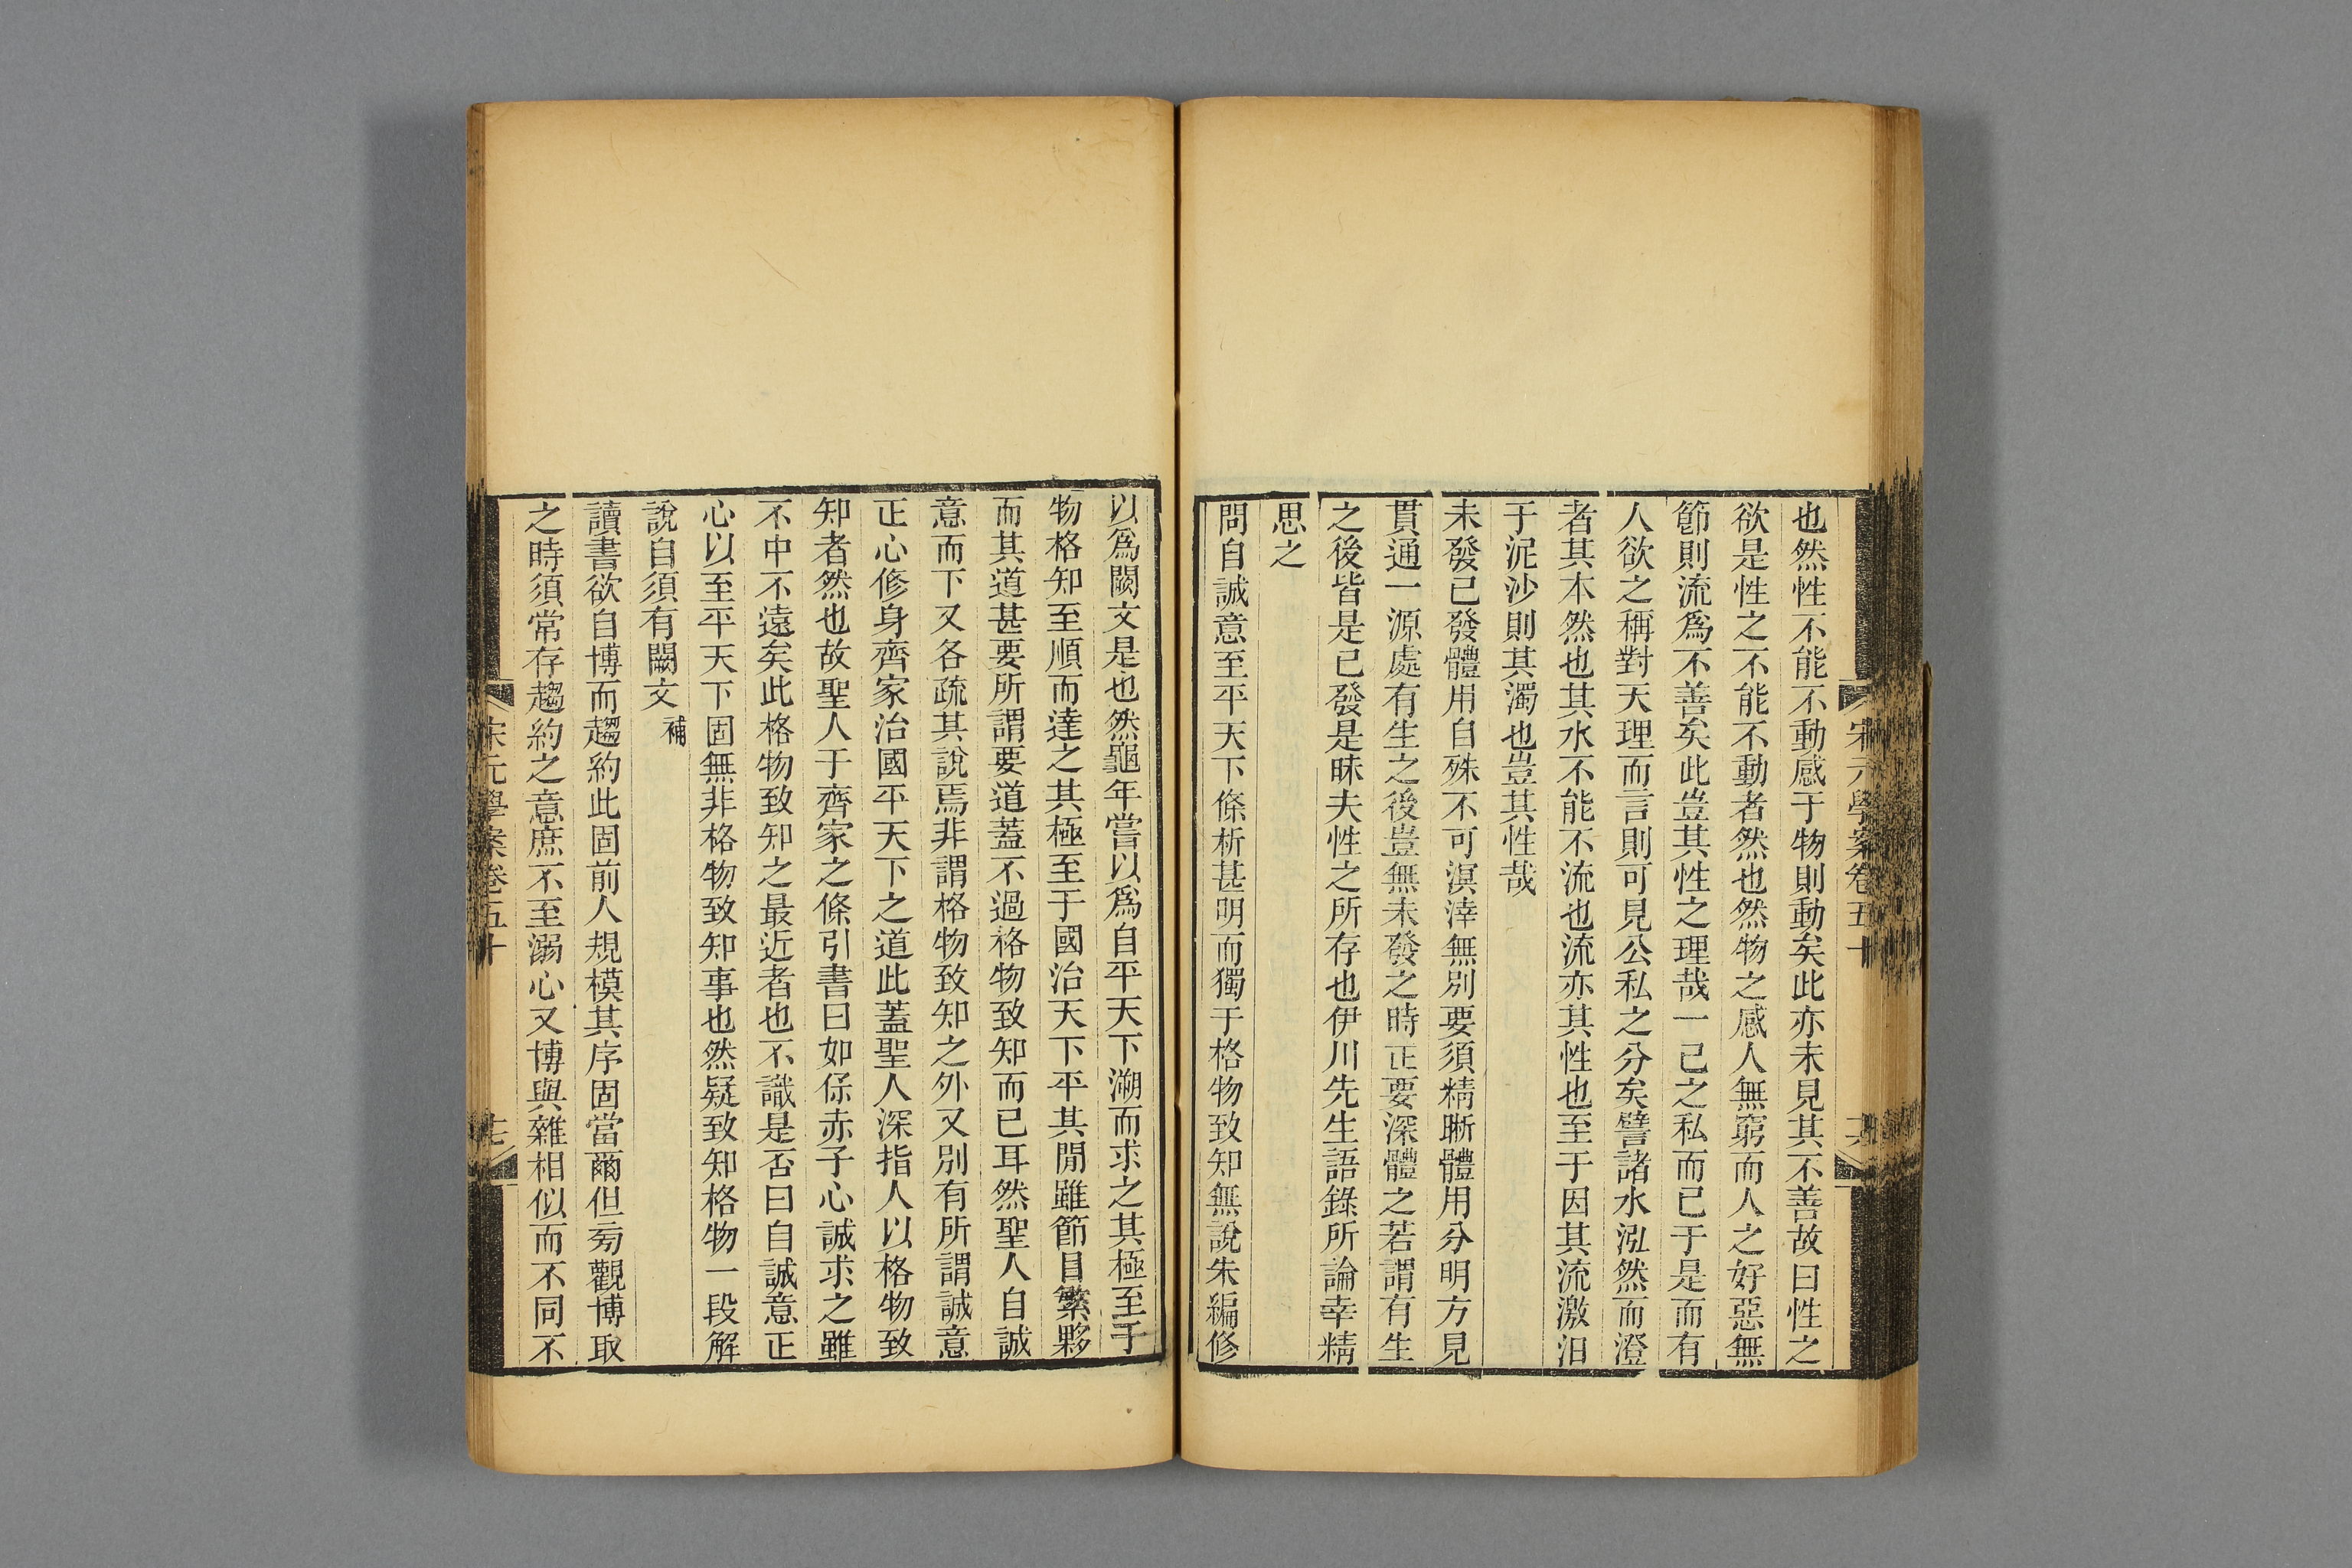 宋元學案卷五十
也然性不能不動感于物則動矣此亦未見其不善故曰性之
欲是性之不能不動者然也然物之感人無窮而人之好惡無
節則流爲不善矣此豈其性之理哉一己之私而已于是而有
人欲之稱對天理而言則可見公私之分矣譬諸水泓然而澄
者其本然也其水不能不流也流亦其性也至于因其流激汨
于泥沙則其濁也豈其性哉
未發已發體用自殊不可溟涬無別要須精晰體用分明方見
貫通一源處有生之後豈無未發之時正要深體之若謂有生
之後皆是已發是昧夫性之所存也伊川先生語錄所論幸精
思之
問自誠意至平天下條析甚明而獨于格物致知無說朱編修
以爲闕文是也然龜年嘗以爲自平天下溯而求之其極至于
物格知至順而達之其極至于國治天下平其閒雖節目繁夥
而其道甚要所謂要道蓋不過格物致知而已耳然聖人自誠
意而下又各疏其說焉非謂格物致知之外又別有所謂誠意
正心修身齊家治國平天下之道此蓋聖人深指人以格物致
知者然也故聖人于齊家之條引書曰如保赤子心誠求之雖
不中不遠矣此格物致知之最近者也不識是否曰自誠意正
心以至平天下固無非格物致知事也然疑致知格物一段解
說自須有闕文補
讀書欲自博而趨約此固前人規模其序固當爾但旁觀博取
之時須常存趨約之意庶不至溺心又博與雜相似而不同不
宋元學案卷五十